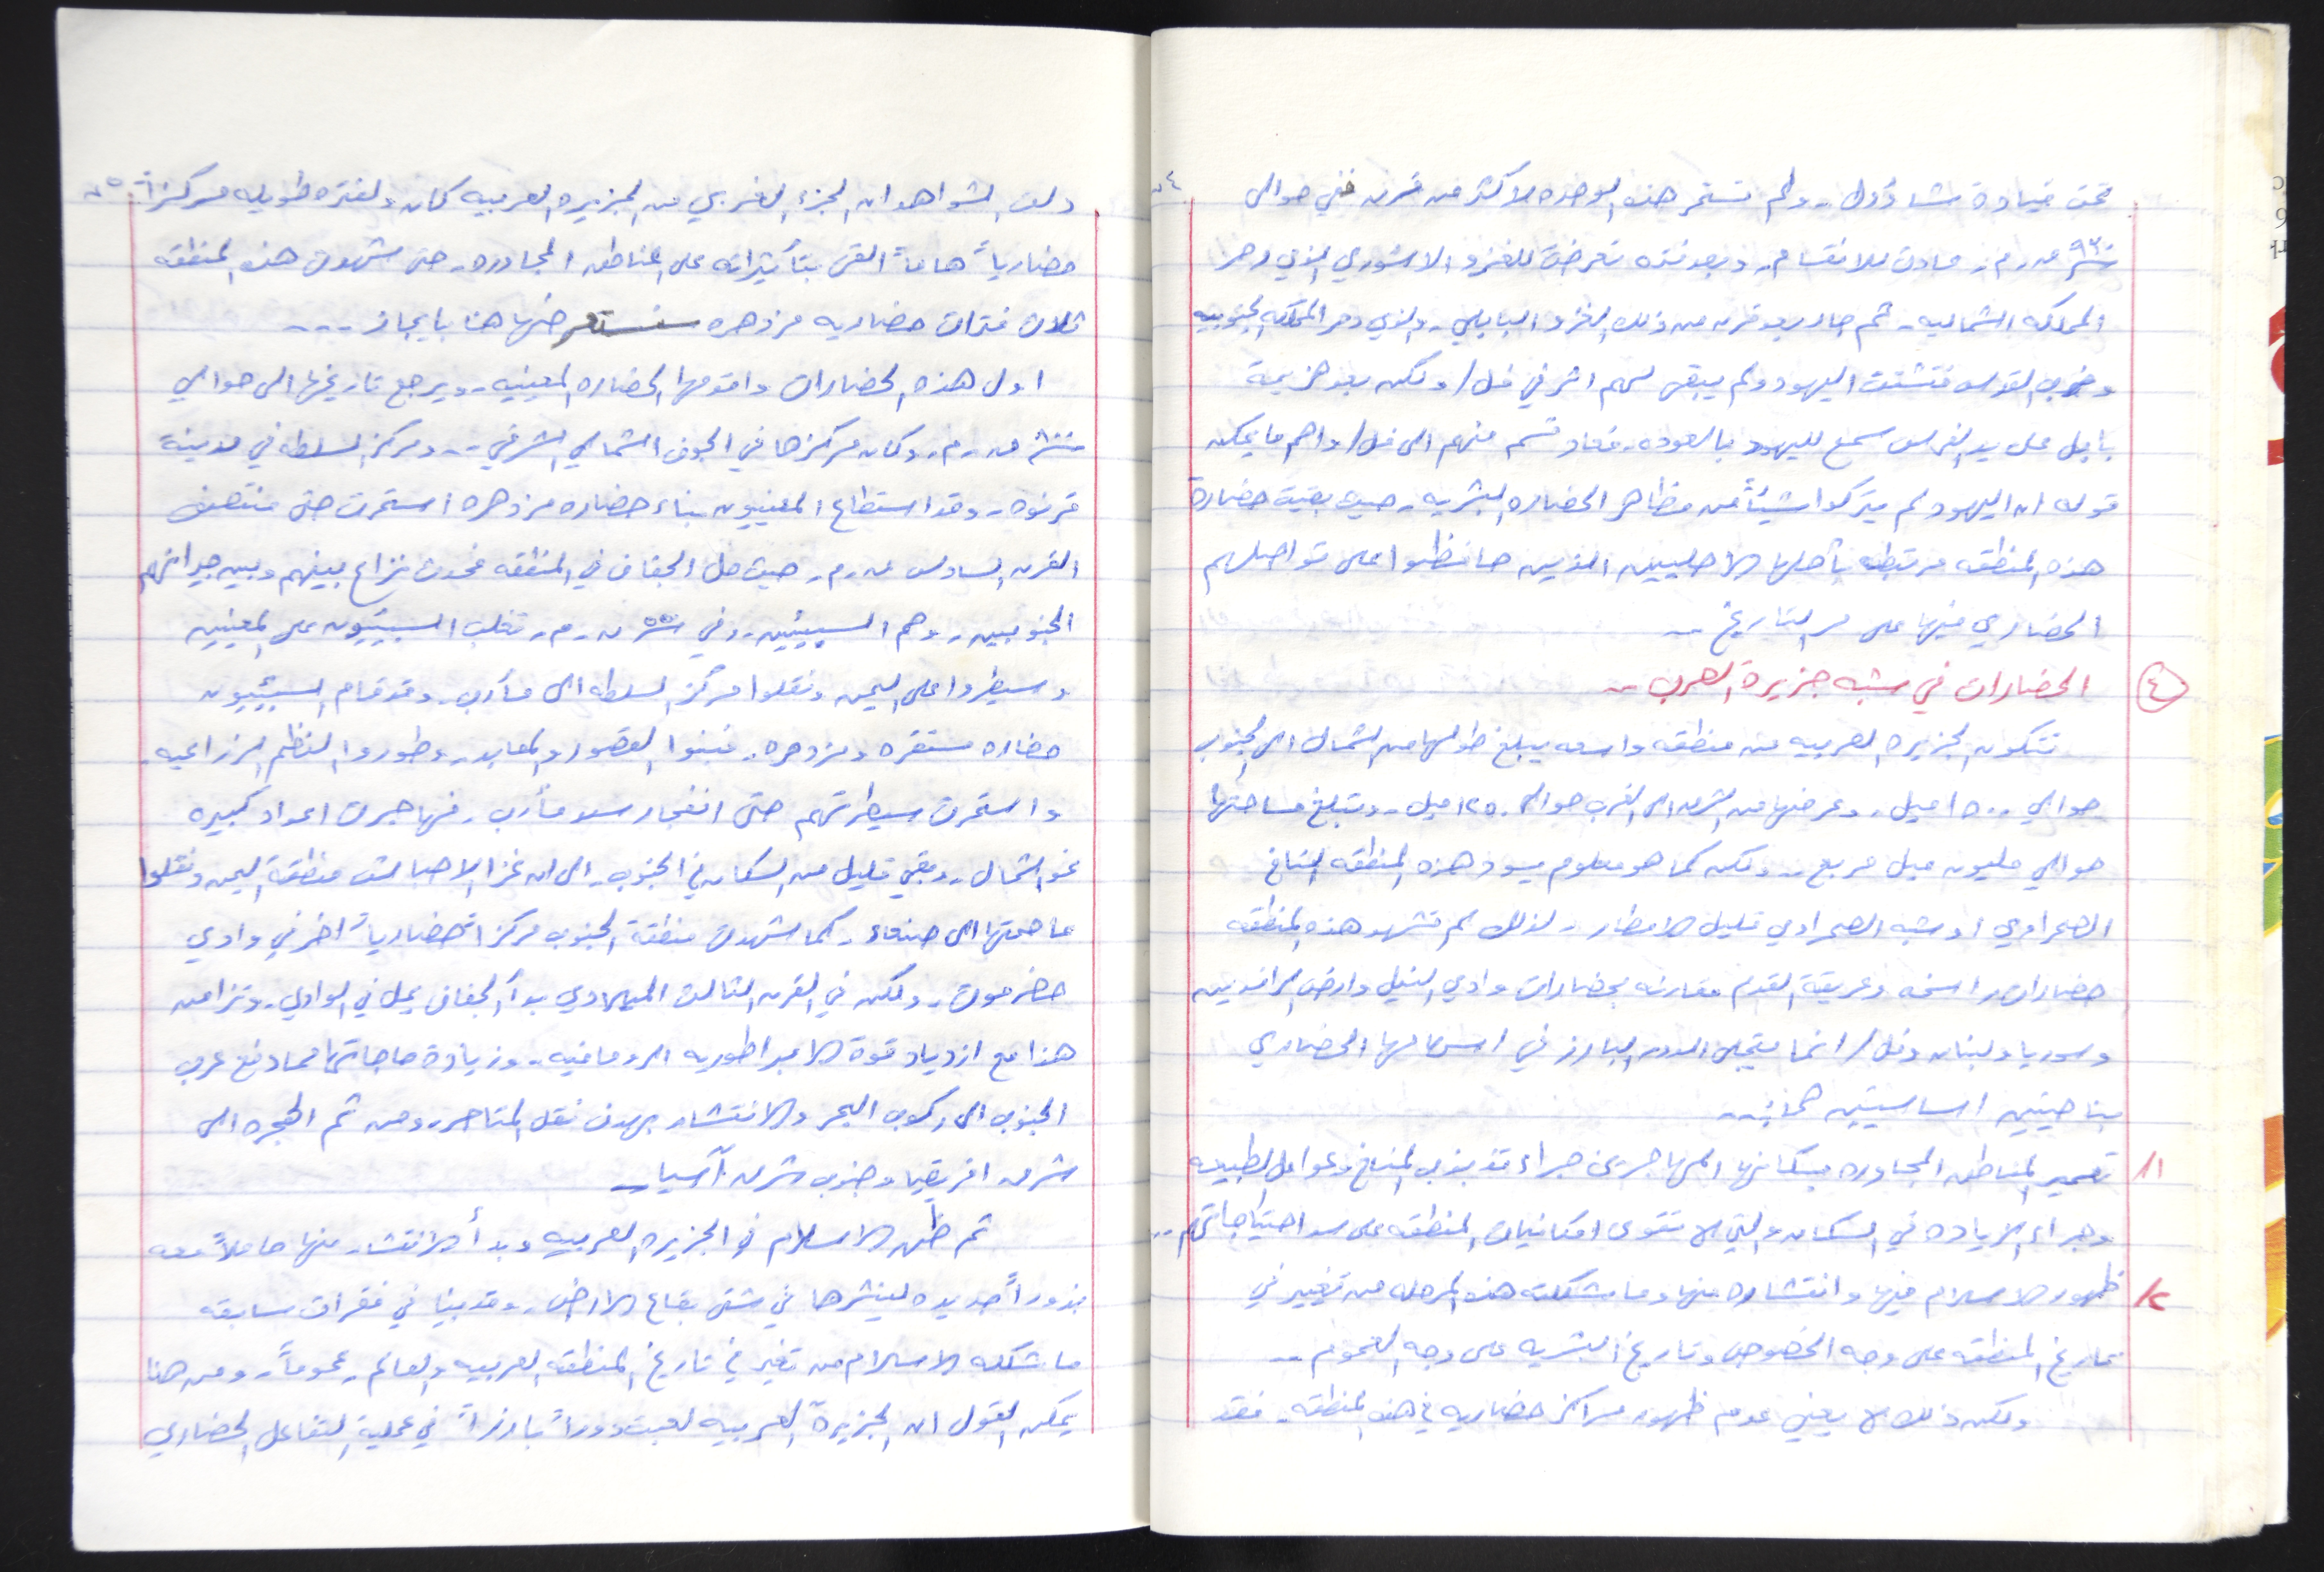 ٤
تحت قيادة شاؤول.. ولم تستمر هذه الوحده لاكثر من قرن ففي حوالى
٩٣٠ ق.م. عادت للانقسام. وبعد فتره تعرضت للغزو الاشوري الذي دمر
المملكه الشماليه. ثم جاء بعد قرن من ذلك الغزو البابلي. والذي دمر المملكه الجنوبيه
وخرب القدس فتشتت اليهود ولم يبقى لهم اثر في فل/ ولكن بعد هزيمة
بابل على يد الفرس سمح لليهود بالعوده. فعاد قسم منهم الى فل/ واهم ما يمكن
قوله ان اليهود لم يتركوا شيئاً من مظاهر الحضاره البشريه. حيث بقيت حضارة
هذه المنطقه مرتبطه بأهلها الاصليين الذين حافظوا على تواصلهم
الحضاري فيها على مر التاريخ ..
٤ الحضارات في شبه جزيرة العرب ..
تتكون الجزيره العربيه من منطقه واسعه يبلغ طولها من الشمال الى الجنوب
حوالي ١٥٠٠ ميل. وعرضها من الشرق الى الغرب حوالى ١٢٥٠ ميل.. وتبلغ مساحتها
حوالي مليون ميل مربع.. ولكن كما هو معلوم يسود هذه المنطقه المناخ
الصحراوي او شبه الصحراوي قليل الامطار. لذلك لم تشهد هذه المنطقه
حضارات راسخه وعريقة القدم مقارنه بحضارات وادي النيل وارض الرافدين
وسوريا ولبنان وفل/ انما يتجلى الدور البارز في اسهامها الحضاري
بناحيتين اساسيتين هما :ــ
١/ تعمير المناطق المجاوره بسكانها المهاجرين جراء تذبذب المناخ وعوامل الطبيعه
وجراء الزياده في السكان والتي لا تقوى امكانيات المنطقه على سد احتياجاتهم..
٢/ ظهور الاسلام فيها وانتشاره منها وما شكلت هذه المرحله من تغيير في
تاريخ المنطقه على وجه الخصوص وتاريخ البشريه على وجه العموم ..
ولكن ذلك لا يعني عدم ظهور مراكز حضاريه في هذه المنطقه. فقد
٥
دلت الشواهد ان الجزء الغربي من الجزيره العربيه كان ولفتره طويله مركزاً
حضارياً هاماً القى بتأثيراته على المناطق المجاوره. حتى شهدت هذه المنطقه
ثلاث فترات حضاريه مزدهره سنستعرضها هنا بايجاز ...
اول هذه الحضارات واقدمها الحضاره المعينيه. ويرجع تاريخها الى حوالي
ق.م. وكان مركزها في الجوف الشمالي الشرقي.. ومركز السلطه في مدينة
قرنوه. وقد استطاع المعينيون بناء حضاره مزدهره استمرت حتى منتصف
القرن السادس ق.م. حيث حل الجفاف في المنطقه فحدث نزاع بينهم وبين جيرانهم
الجنوبيين. وهم السبيئيين.. وفي ٥٥٠ ق.م. تغلب السبيئيون على المعينيين
وسيطروا على اليمن ونقلوا مركز السلطه الى مأرب. وقد قام السبيئيون
حضاره مستقره ومزدهره. فبنوا القصور والمعابد. وطوروا النظم الزراعيه.
واستمرت سيطرتهم حتى انفجار سد مأرب. فهاجرت اعداد كبيره
نحو الشمال. وبقي قليل من السكان في الجنوب. الى ان غزا الاحباش منطقة اليمن ونقلوا
عاصمتها الى صنعاء. كما شهدت منطقة الجنوب مركزاً حضارياً اخر في وادي
حضرموت. ولكن في القرن الثالث الميلادي بدأ الجفاف يحل في الوادي. وتزامن
هذا مع ازدياد قوة الامبراطوريه الرومانيه. وزيادة حاجاتها مما دفع عرب
الجنوب الى ركوب البحر والانتشار بهدف نقل المتاجر. ومن ثم الهجره الى
شرق افريقيا وجنوب شرق آسيا ــ
ثم ظهر الاسلام في الجزيره العربيه وبدأ الانتشار منها حاملاً معه
بذوراً جديده لينشرها في شتى بقاع الارض. وقد بينا في فقرات سابقه
ما شكله الاسلام من تغير في تاريخ المنطقه العربيه والعالم عموماً. ومن هنا
يمكن القول ان الجزيرة العربيه لعبت دوراً بارزاً في عملية التفاعل الحضاري